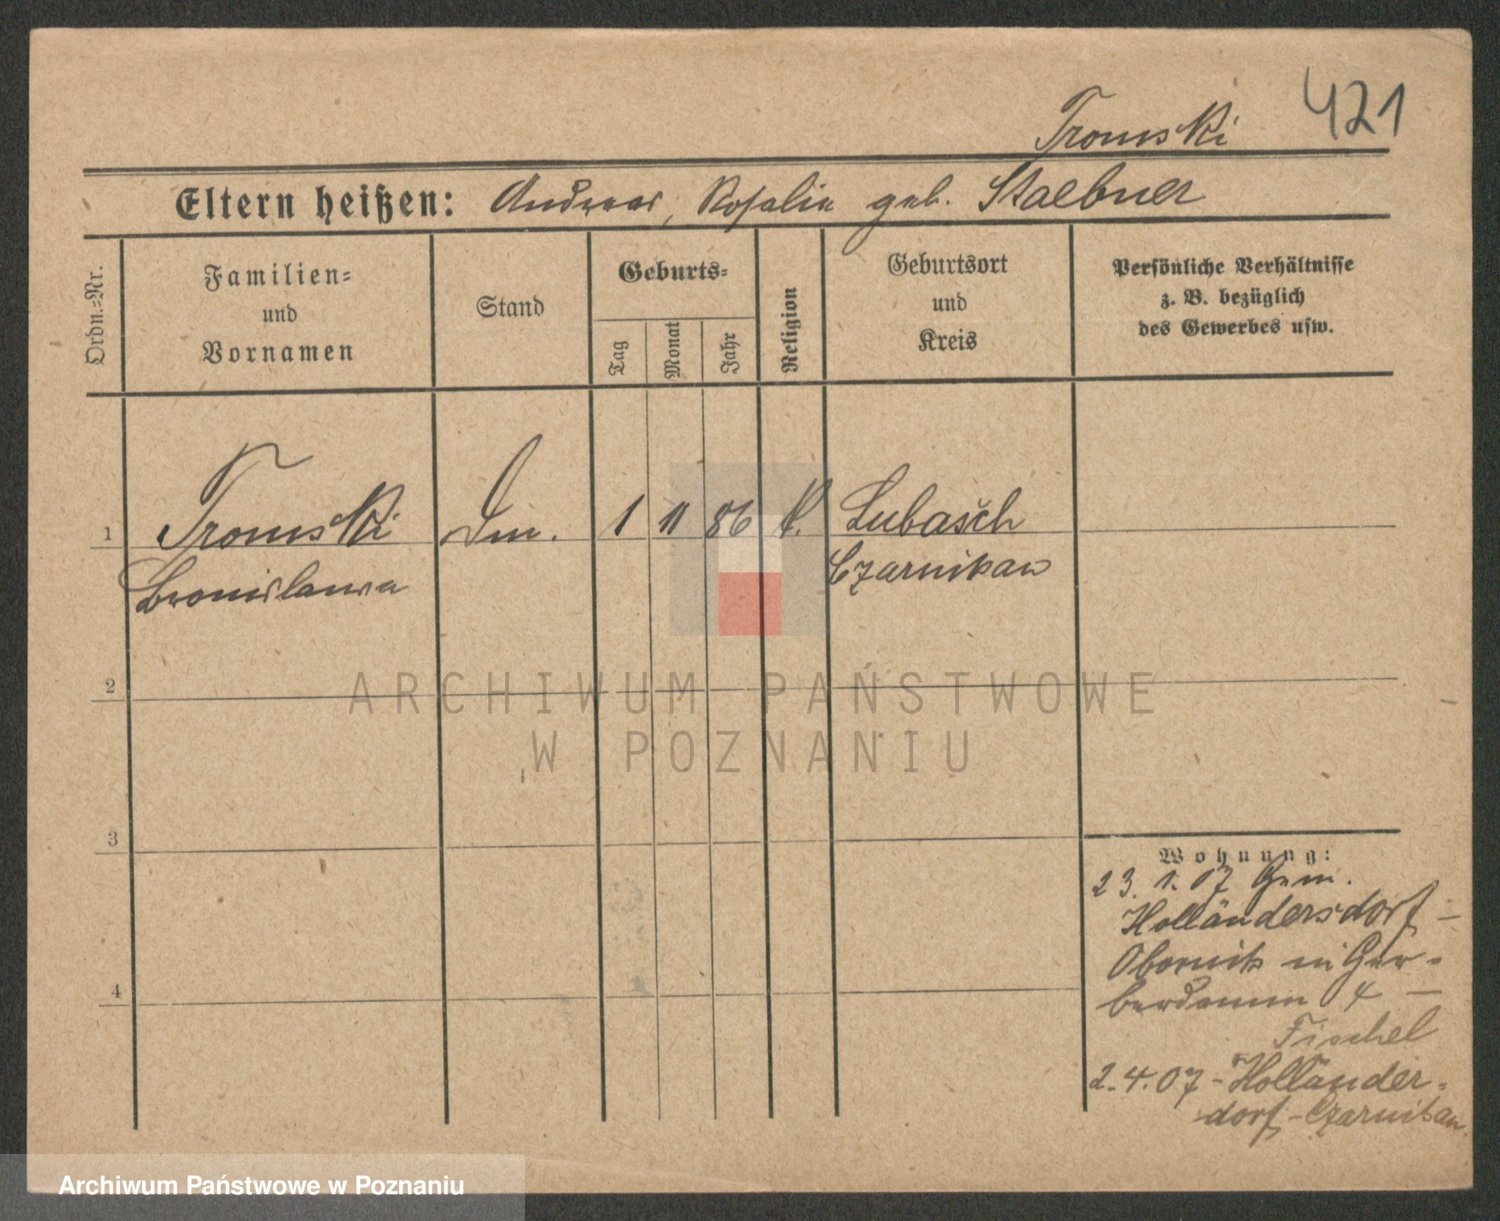 421
Tromski
Eltern heißen: Andreas, Rosalie geb. Staebner
Ordn.=Nr.
Familien=
und
Vornamen
Stand
Geburts=
Tag
Monat
Jahr
Religion
Geburtsort
und
Kreis
Persönliche Verhältnisse
z. B. bezüglich
des Gewerbes usw.
1 Tromski 1 11 86 k. Lubasch
Bronislawa Czarnikau
2
ARCHIWUM PAŃSTWOWE
W POZNANIU
3
Wohnung:
23. 1. 07 Gem.
Holländersdorf –
Obornik in Ger-
berdamm 4 –
Fischel
4
2.4.07 - Holländer-
dorf - Czarnikau.
Archiwum Państwowe w Poznaniu